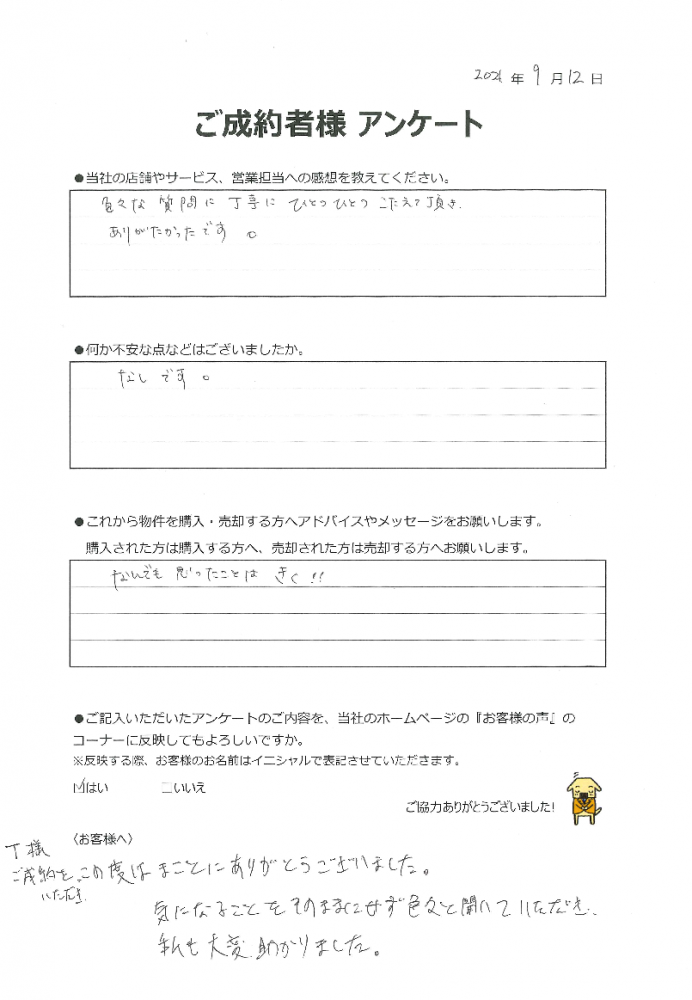 2021 年 9 月 12 日
ご成約者様 アンケート
●当社の店舗やサービス、営業担当への感想を教えてください。
色々な 質問に 丁寧に ひとつひとつ こたえて頂き、
ありがたかったです。
●何か不安な点などはございましたか。
なし です。
●これから物件を購入・売却する方へアドバイスやメッセージをお願いします。
購入された方は購入する方へ、売却された方は売却する方へお願いします。
なんでも 思ったことは きく!!
●ご記入いただいたアンケートのご内容を、当社のホームページの『お客様の声』の
コーナーに反映してもよろしいですか。
※反映する際、お客様のお名前はイニシャルで表記させていただきます。
☑はい □いいえ
ご協力ありがとうございました!
〈お客様へ〉
T様
ご成約を いただき、この度は まことにありがとうございました。
気になることを そのままにせず 色々と聞いて いただき、
私も 大変、助かりました。